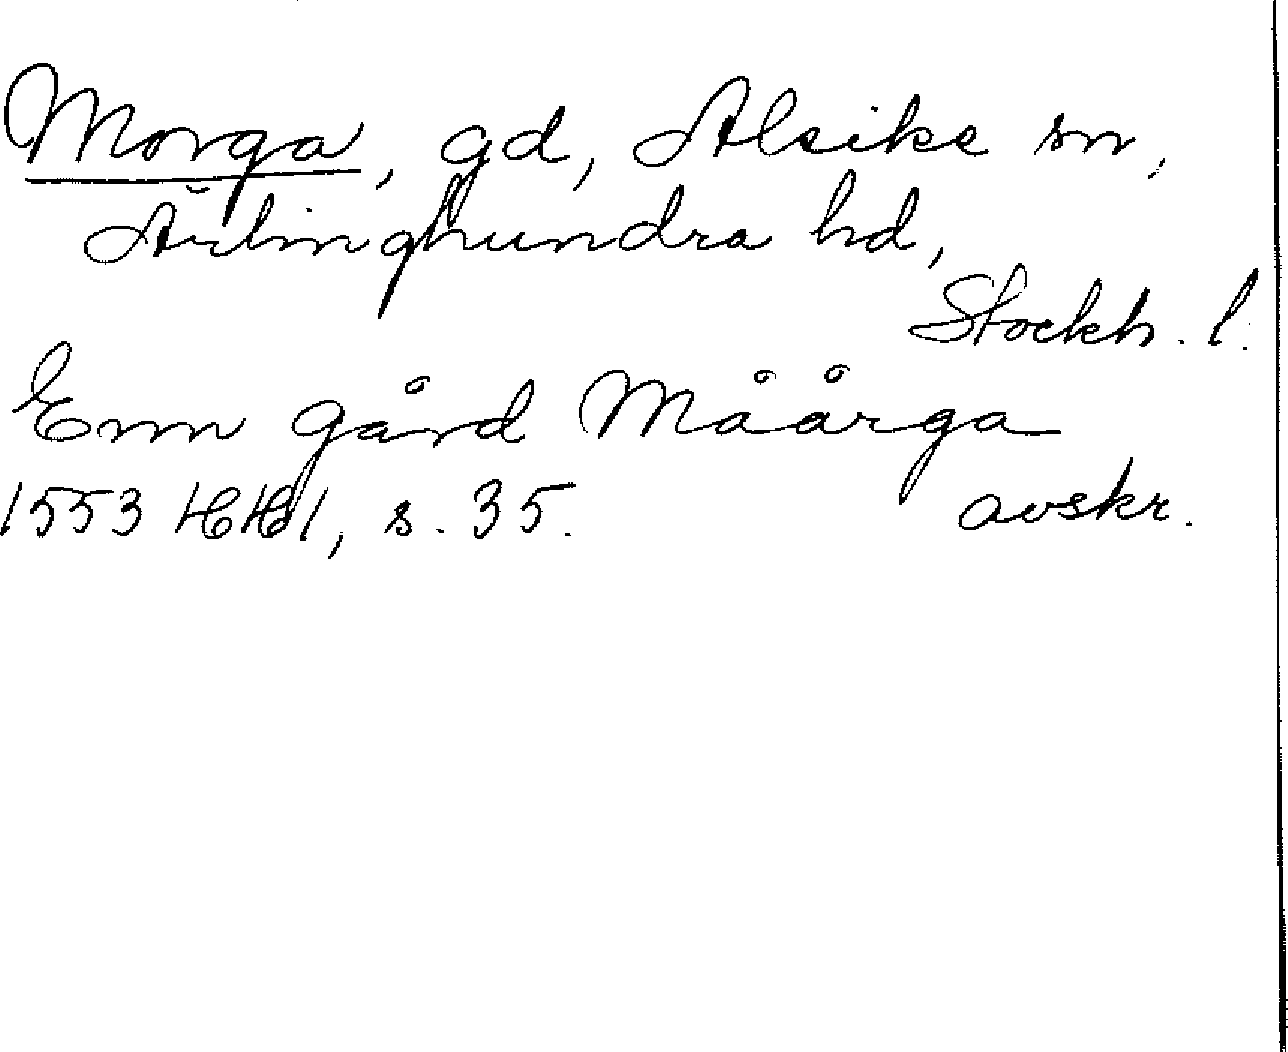 Morga, gd, Alsike sn,
Ärlinghundra hd,
Stockh. l.
Enn gård Måårga
1553 HH 1, s. 35. avskr.